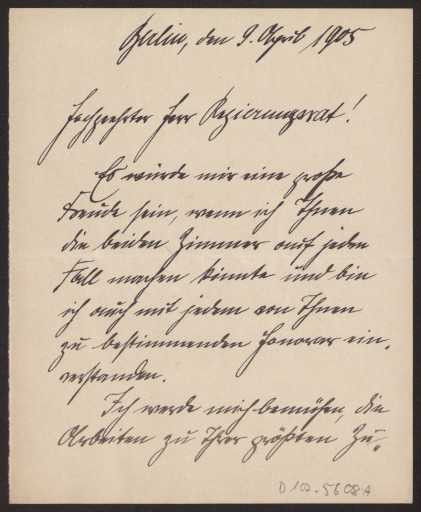 Berlin, den 9. April 1905
Hochgeehrter Herr Regierungsrat!
Es würde mir eine große
Freude sein, wenn ich Ihnen
die beiden Zimmer auf jeden
Fall machen könnte und bin
ich auch mit jedem von Ihnen
zu bestimmenden Honorar ein-
verstanden.
Ich werde mich bemühen, die
Arbeiten zu Ihrer größten Zu-
D 102-5608A